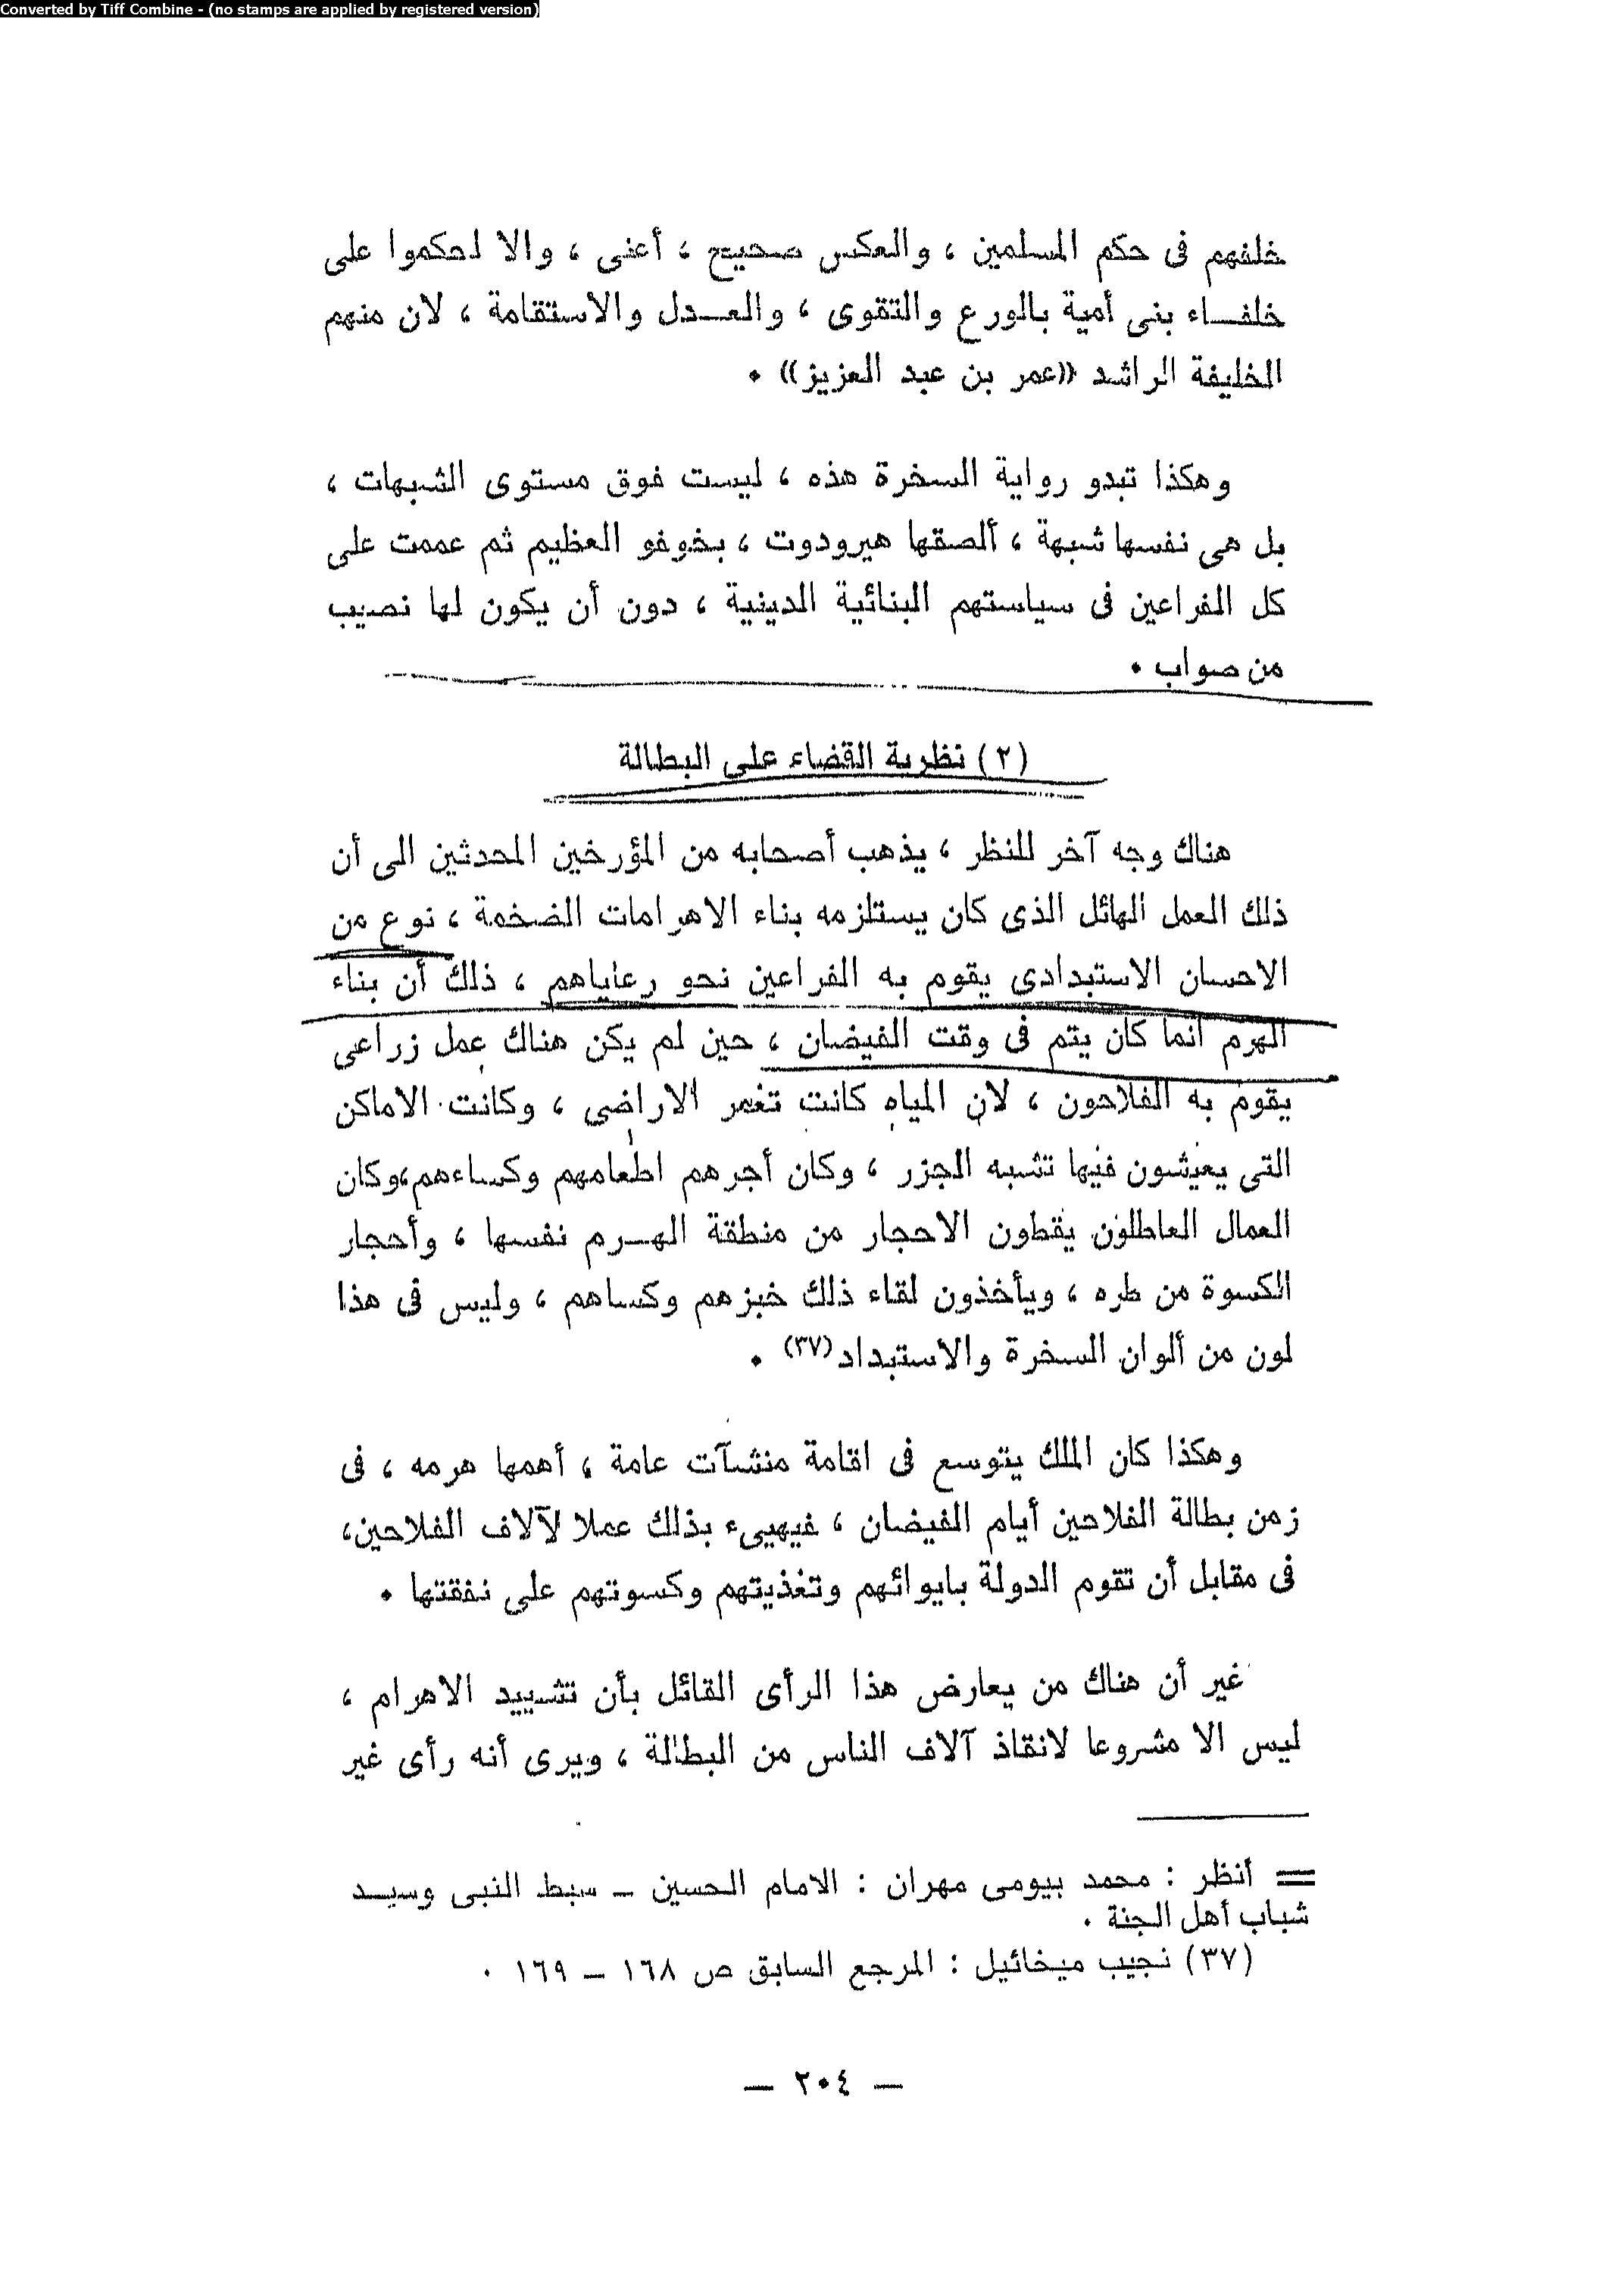 Converted by Tiff Combine - (no stamps are applied by registered version)
خلفهم فى حكم المسلمين ، والعكس صحيح ، أعنى ، والا لحكموا على
خلفـــاء بنى أمية بالورع والتقوى ، والعـــدل والاستقامة ، لان منهم
الخليفة الراشد ((عمر بن عبد العزيز)) ٠
وهكذا تبدو رواية السخرة هذه ، ليست فوق مستوى الشبهات ،
بل هى نفسها شبهة ، ألصقها هيرودوت ، بخوفو العظيم ثم عممت على
كل الفراعين فى سياستهم البنائية الدينية ، دون أن يكون لها نصيب
من صواب ٠
(٢) نظرية القضاء على البطالة
هناك وجه آخر للنظر ، يذهب أصحابه من المؤرخين المحدثين الى أن
ذلك العمل الهائل الذى كان يستلزمه بناء الاهرامات الضخمة ، نوع من
الاحسان الاستبدادى يقوم به الفراعين نحو رعاياهم ، ذلك أن بناء
الهرم انما كان يتم فى وقت الفيضان ، حين لم يكن هناك عمل زراعى
يقوم به الفلاحون ، لان المياه كانت تغمر الاراضى ، وكانت الاماكن
التى يعيشون فيها تشبه الجزر ، وكان أجرهم اطعامهم وكساءهم،وكان
العمال العاطلون يقطون الاحجار من منطقة الهــرم نفسها ، وأحجار
الكسوة من طره ، ويأخذون لقاء ذلك خبزهم وكساهم ، وليس فى هذا
لون من ألوان السخرة والاستبداد(٣٧) ٠
وهكذا كان الملك يتوسع فى اقامة منشآت عامة ، أهمها هرمه ، فى
زمن بطالة الفلاحين أيام الفيضان ، فيهيىء بذلك عملا لآلاف الفلاحين،
فى مقابل أن تقوم الدولة بايوائهم وتغذيتهم وكسوتهم على نفقتها ٠
غير أن هناك من يعارض هذا الرأى القائل بأن تشييد الاهرام ،
ليس الا مشروعا لانقاذ آلاف الناس من البطالة ، ويرى أنه رأى غير
= أنظر : محمد بيومى مهران : الامام الحسين – سبط النبى وسيــد
شباب أهل الجنة ٠
(٣٧) نجيب ميخائيل : المرجع السابق ص ١٦٨ – ١٦٩ ٠
— ٢٠٤ —